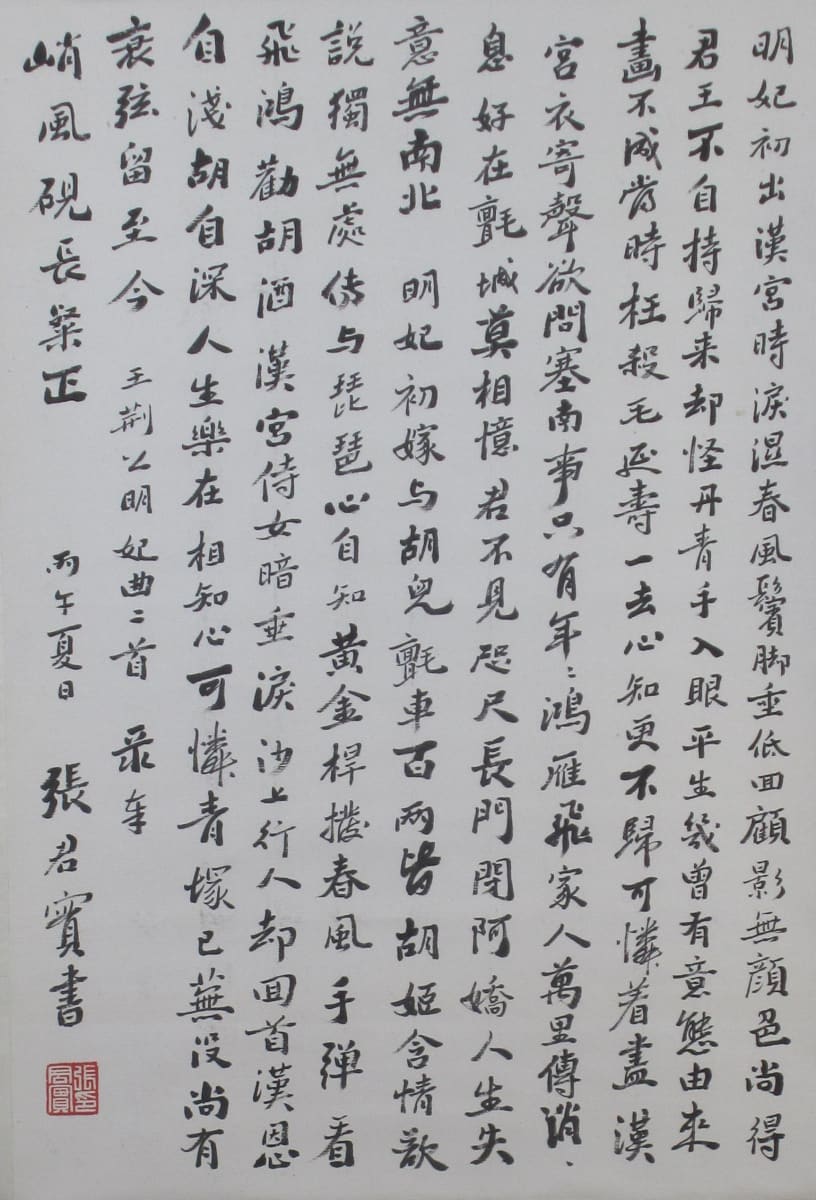 明妃初出漢宮時淚濕春風鬢脚垂低回顧影無顏色尚得
君王不自持歸來却怪丹青手入眼平生幾曾有意態由來
畫不成當時枉殺毛延壽一去心知更不歸可憐着盡漢
宮衣寄聲欲問塞南事只有年〻鴻雁飛家人萬里傳消〻
息好在氈城莫相憶君不見咫尺長門閉阿嬌人生失
意無南北 明妃初嫁与胡兒氈車百兩皆胡姬含情欲
説獨無處傳与琵琶心自知黃金桿撥春風手彈看
飛鴻勸胡酒漢宮侍女暗垂淚沙上行人却回首漢恩
自淺胡自深人生樂在相知心可憐青塚已蕪没尚有
哀弦留至今 王荆公明妃曲二首 录奉
峭風硯長粲正 丙午夏日 張君實書
張君實印